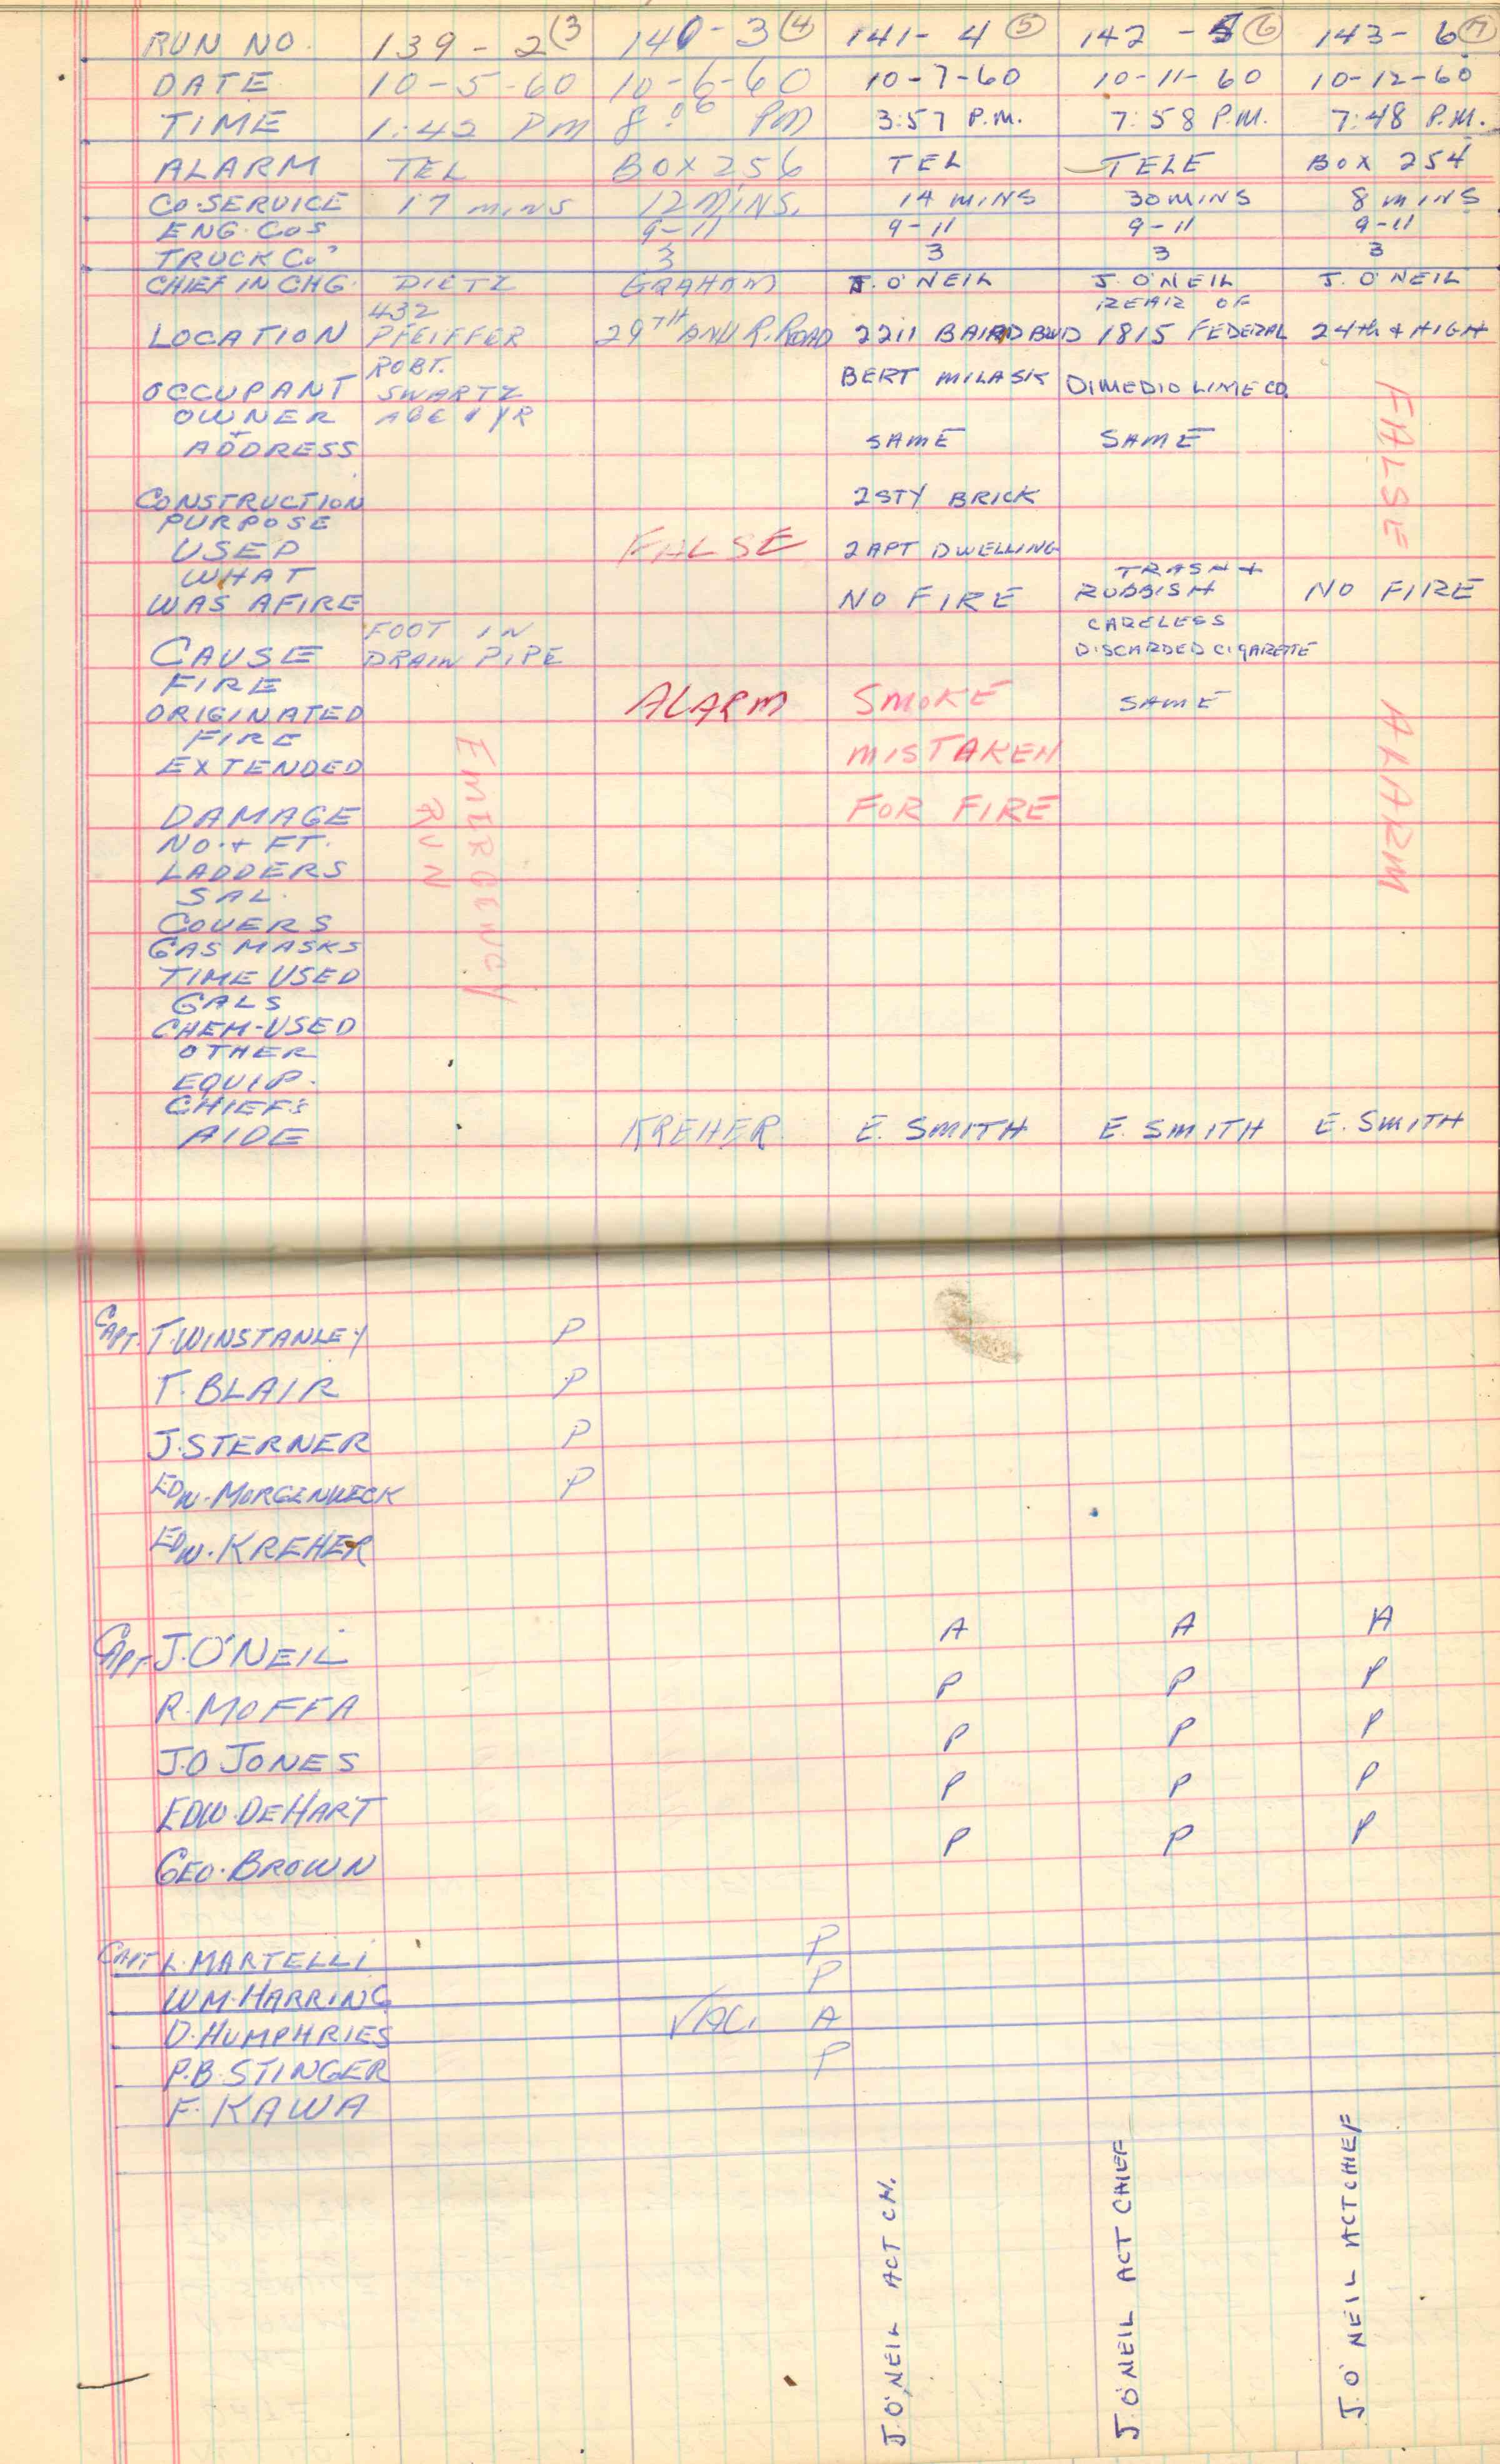 RUN NO. 139-2 (3 140-3 (4) 141-4 (5) 142-5 (6) 143-6 (7)
DATE 10-5-60 10-6-60 10-7-60 10-11-60 10-12-60
TIME 1:42 PM 8:06 PM 3:57 P.M. 7:58 P.M. 7:48 P.M.
ALARM TEL BOX 256 TEL TELE BOX 254
CO. SERVICE 17 MINS 12 MINS. 14 MINS 30 MINS 8 MINS
ENG. COS 9-11 9-11 9-11 9-11
TRUCK CO. 3 3 3 3
CHIEF IN CHG. DIETZ GRAHAM J. O'NEIL J. O'NEIL J. O'NEIL
432 REAR OF
LOCATION PFEIFFER 29TH AND R. ROAD 2211 BAIRD BLVD 1815 FEDERAL 24th & HIGH
ROBT.
OCCUPANT SWARTZ BERT MILASK DIMEDIO LIME CO.
OWNER AGE 1 YR
+
ADDRESS SAME SAME
CONSTRUCTION 2 STY BRICK
PURPOSE
USED FALSE 2 APT DWELLING
WHAT TRASH +
WAS AFIRE NO FIRE RUBBISH NO FIRE
FOOT IN CARELESS
CAUSE DRAIN PIPE DISCARDED CIGARETTE
FIRE
ORIGINATED ALARM SMOKE SAME
FIRE
EXTENDED MISTAKEN
DAMAGE FOR FIRE
NO. + FT.
LADDERS
SAL.
COVERS
GAS MASKS
TIME USED
GALS
CHEM-USED
OTHER
EQUIP.
CHIEFS
AIDE KREHER E. SMITH E. SMITH E. SMITH
EMERGENCY
RUN
FALSE
ALARM
CAPT. T. WINSTANLEY P
T. BLAIR P
J. STERNER P
EDW. MORGENWECK P
EDW. KREHER
CAPT. J. O'NEIL A A A
R. MOFFA P P P
J.O JONES P P P
EDW. DEHART P P P
GEO. BROWN P P P
CAPT L. MARTELLI P
WM. HARRING P
D. HUMPHRIES VAC. A
P.B. STINGER P
F. KAWA
J. O'NEIL ACT CH.
J. O'NEIL ACT CHIEF
J. O'NEIL ACT CHIEF